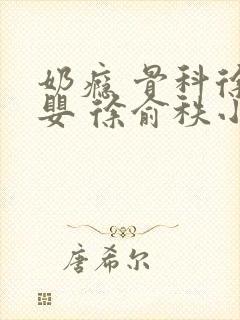 奶瘾 骨科徐
婴 徐俞秩小
唐希尔